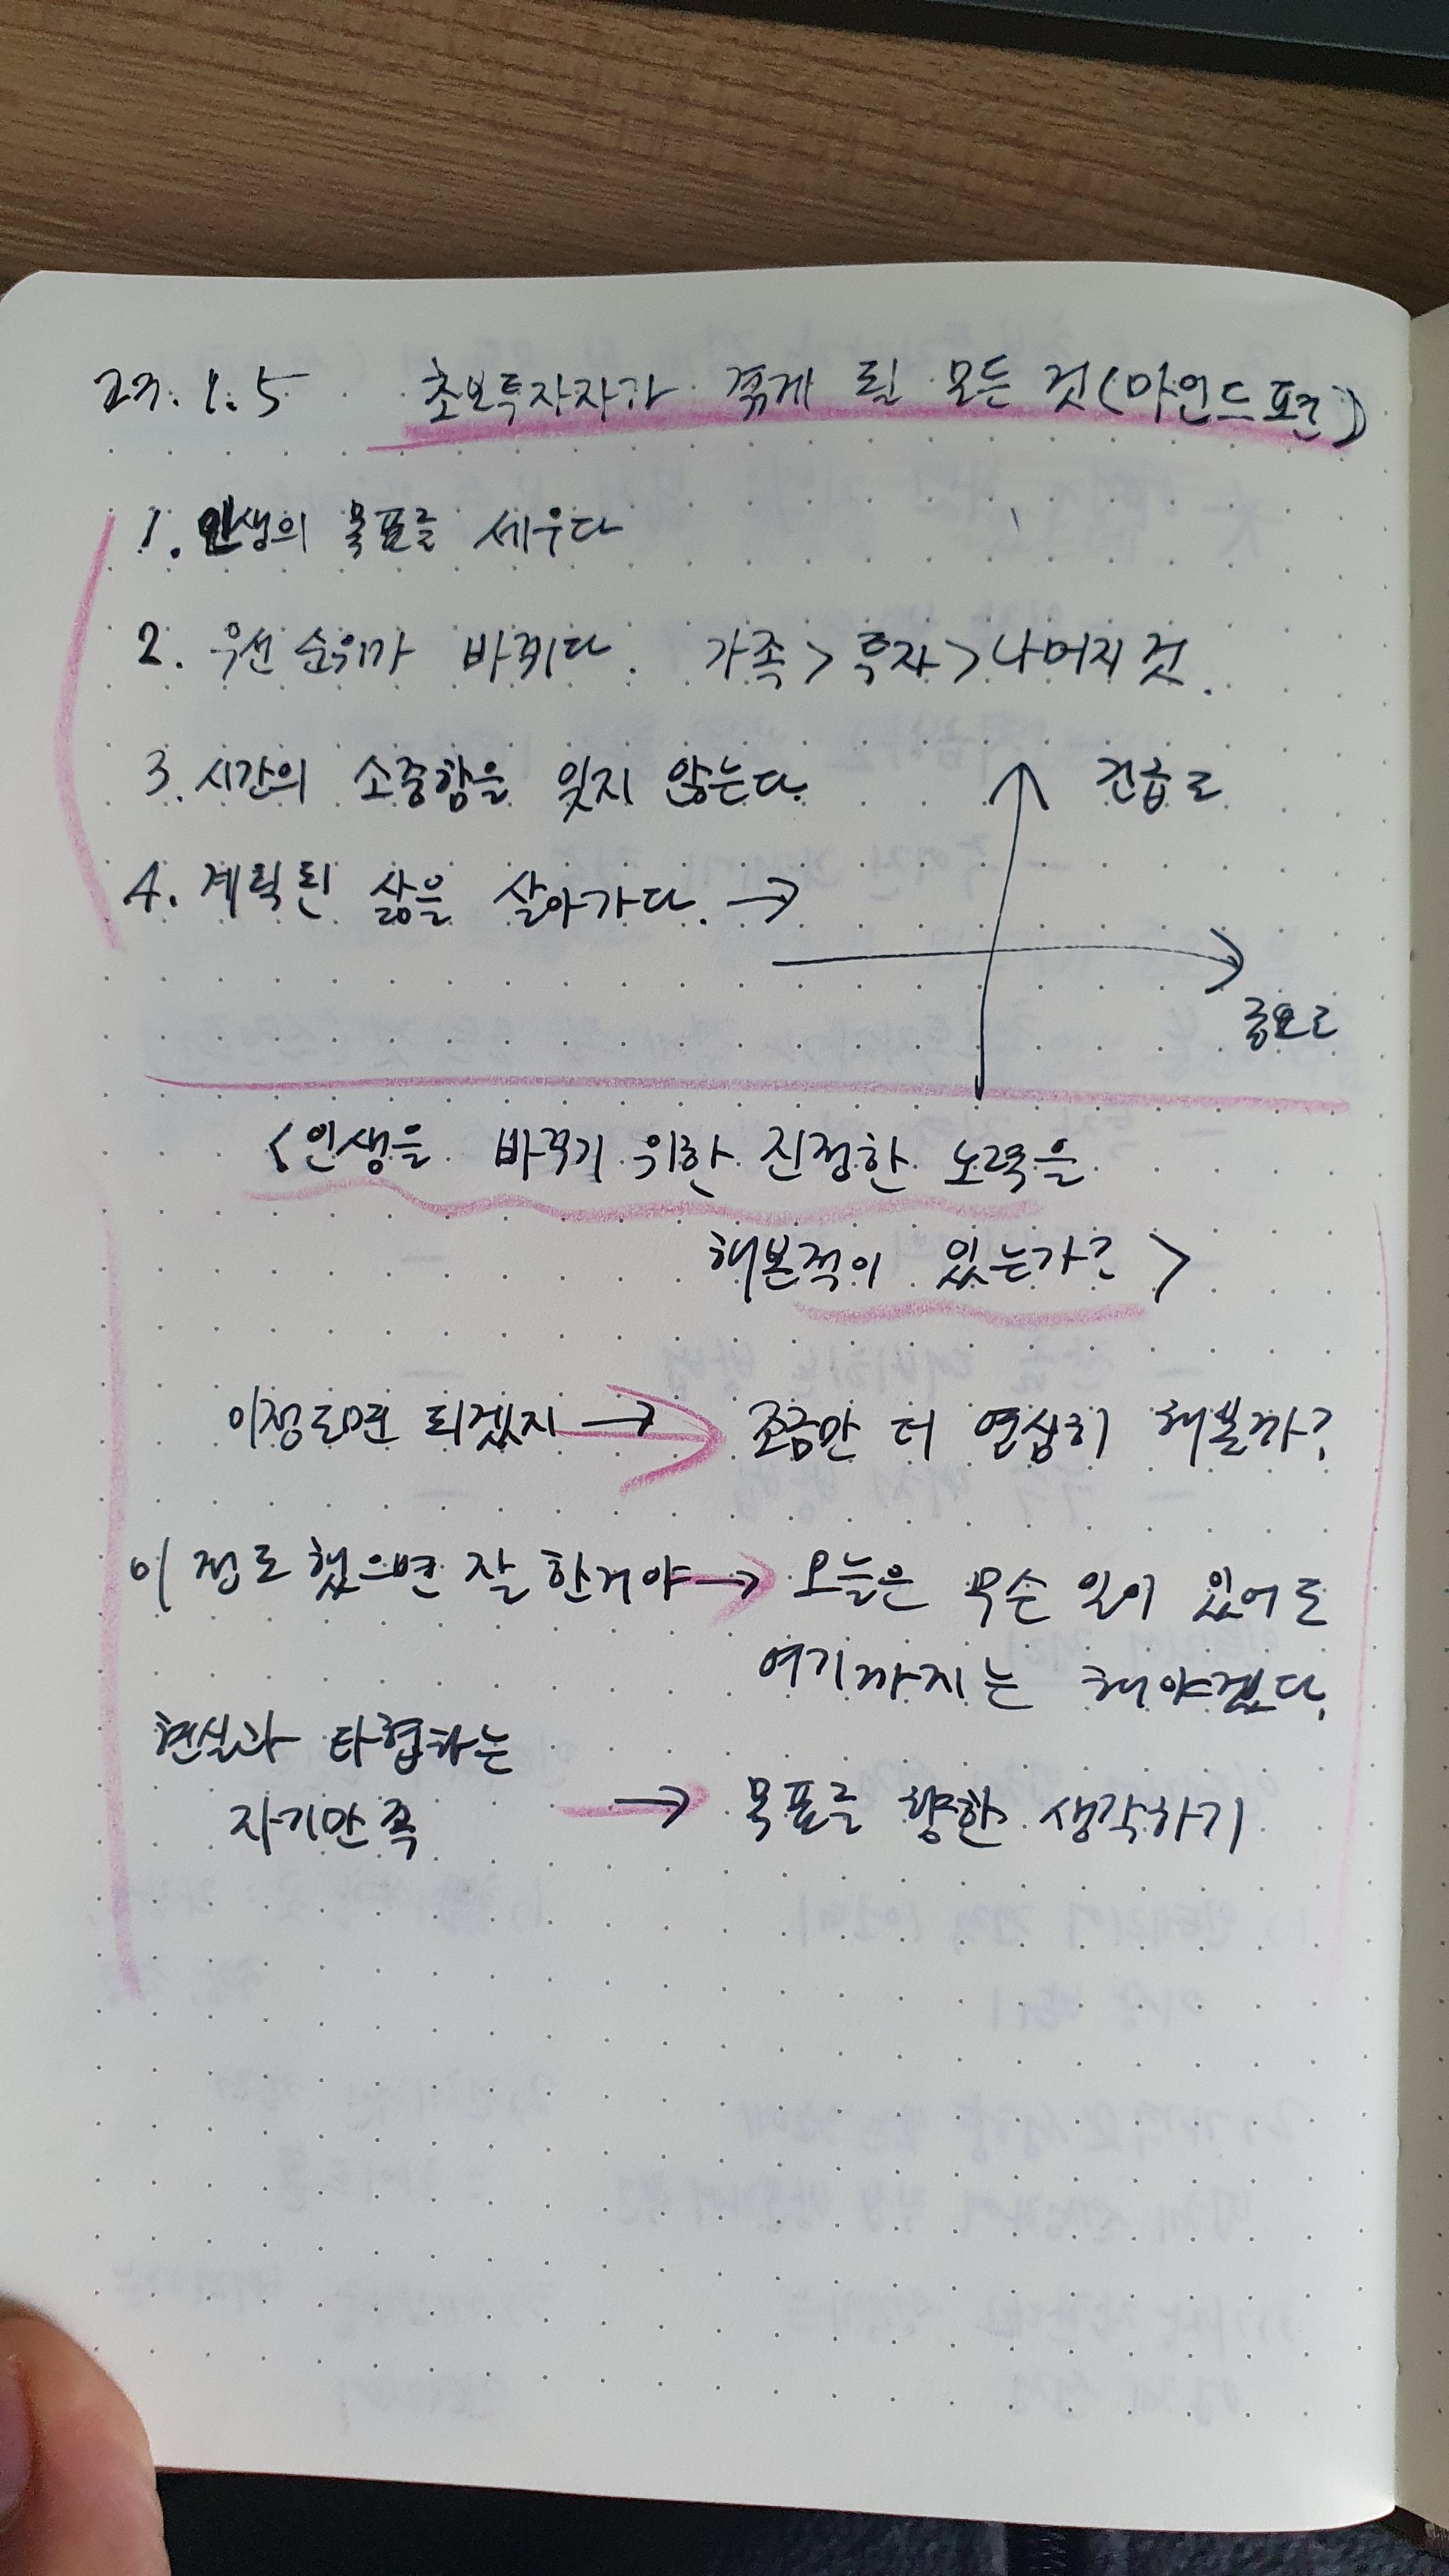 23. 1. 5 초보투자자가 겪게 될 모든 것(마인드편)
1. 인생의 목표를 세우다
2. 우선순위가 바뀌다. 가족 > 투자 > 나머지 것.
3. 시간의 소중함을 잊지 않는다.
긴급도
4. 계획된 삶을 살아가다. →
중요도
<인생을 바꾸기 위한 진정한 노력을
해본적이 있는가? >
이정도면 되겠지 → 조금만 더 열심히 해볼까?
이 정도 했으면 잘 한거야 → 오늘은 무슨 일이 있어도
여기까지는 해야겠다.
현실과 타협하는
자기만족 → 목표를 향한 생각하기